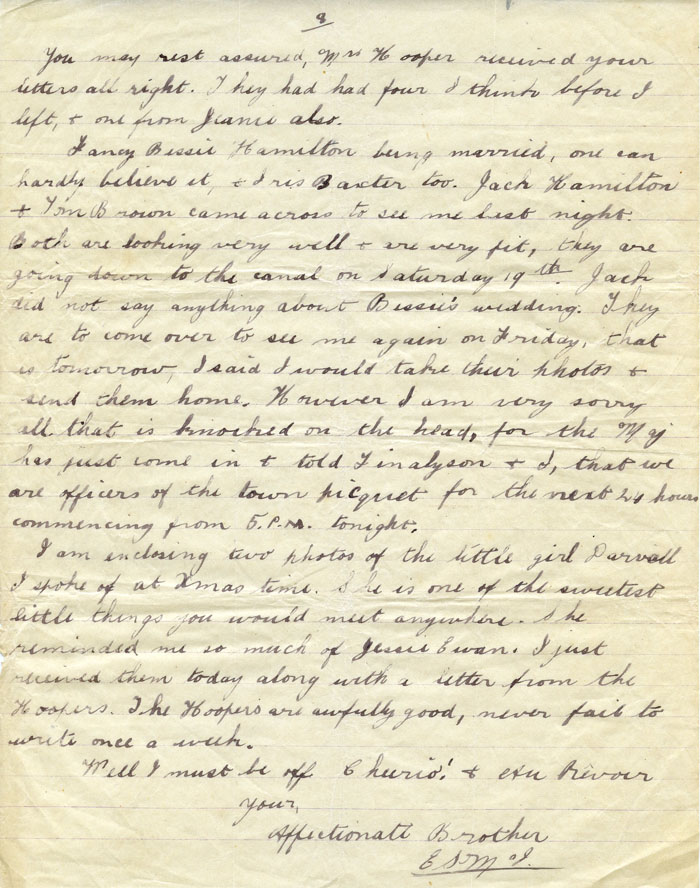 8
You may rest assured, Mrs Hooper received your
letters all right. They had had four I think before I
left, & one from Jeanie also.
Fancy Bessie Hamilton being married, one can
hardly believe it, & Iris Baxter too. Jack Hamilton
& Tom Brown came across to see me last night.
Both are looking very well & are very fit, they are
going down to the canal on Saturday 19th. Jack
did not say anything about Bessie's wedding. They
are to come over to see me again on Friday, that
is tomorrow, I said I would take their photos &
send them home. However I am very sorry
all that is knocked on the head, for the Maj
has just come in & told Finalyson & I, that we
are officers of the town picquet for the next 24 hours
commencing from 5.P.M. tonight.
I am enclosing two photos of the little girl Darvall
I spoke of at Xmas time. She is one of the sweetest
little things you would meet anywhere. She
reminded me so much of Jessie Ewan. I just
received them today along with a letter from the
Hoopers. The Hoopers are awfully good, never fail to
write once a week.
Well I must be off Cheerio! & Au Revoir
Your,
Affectionate Brother